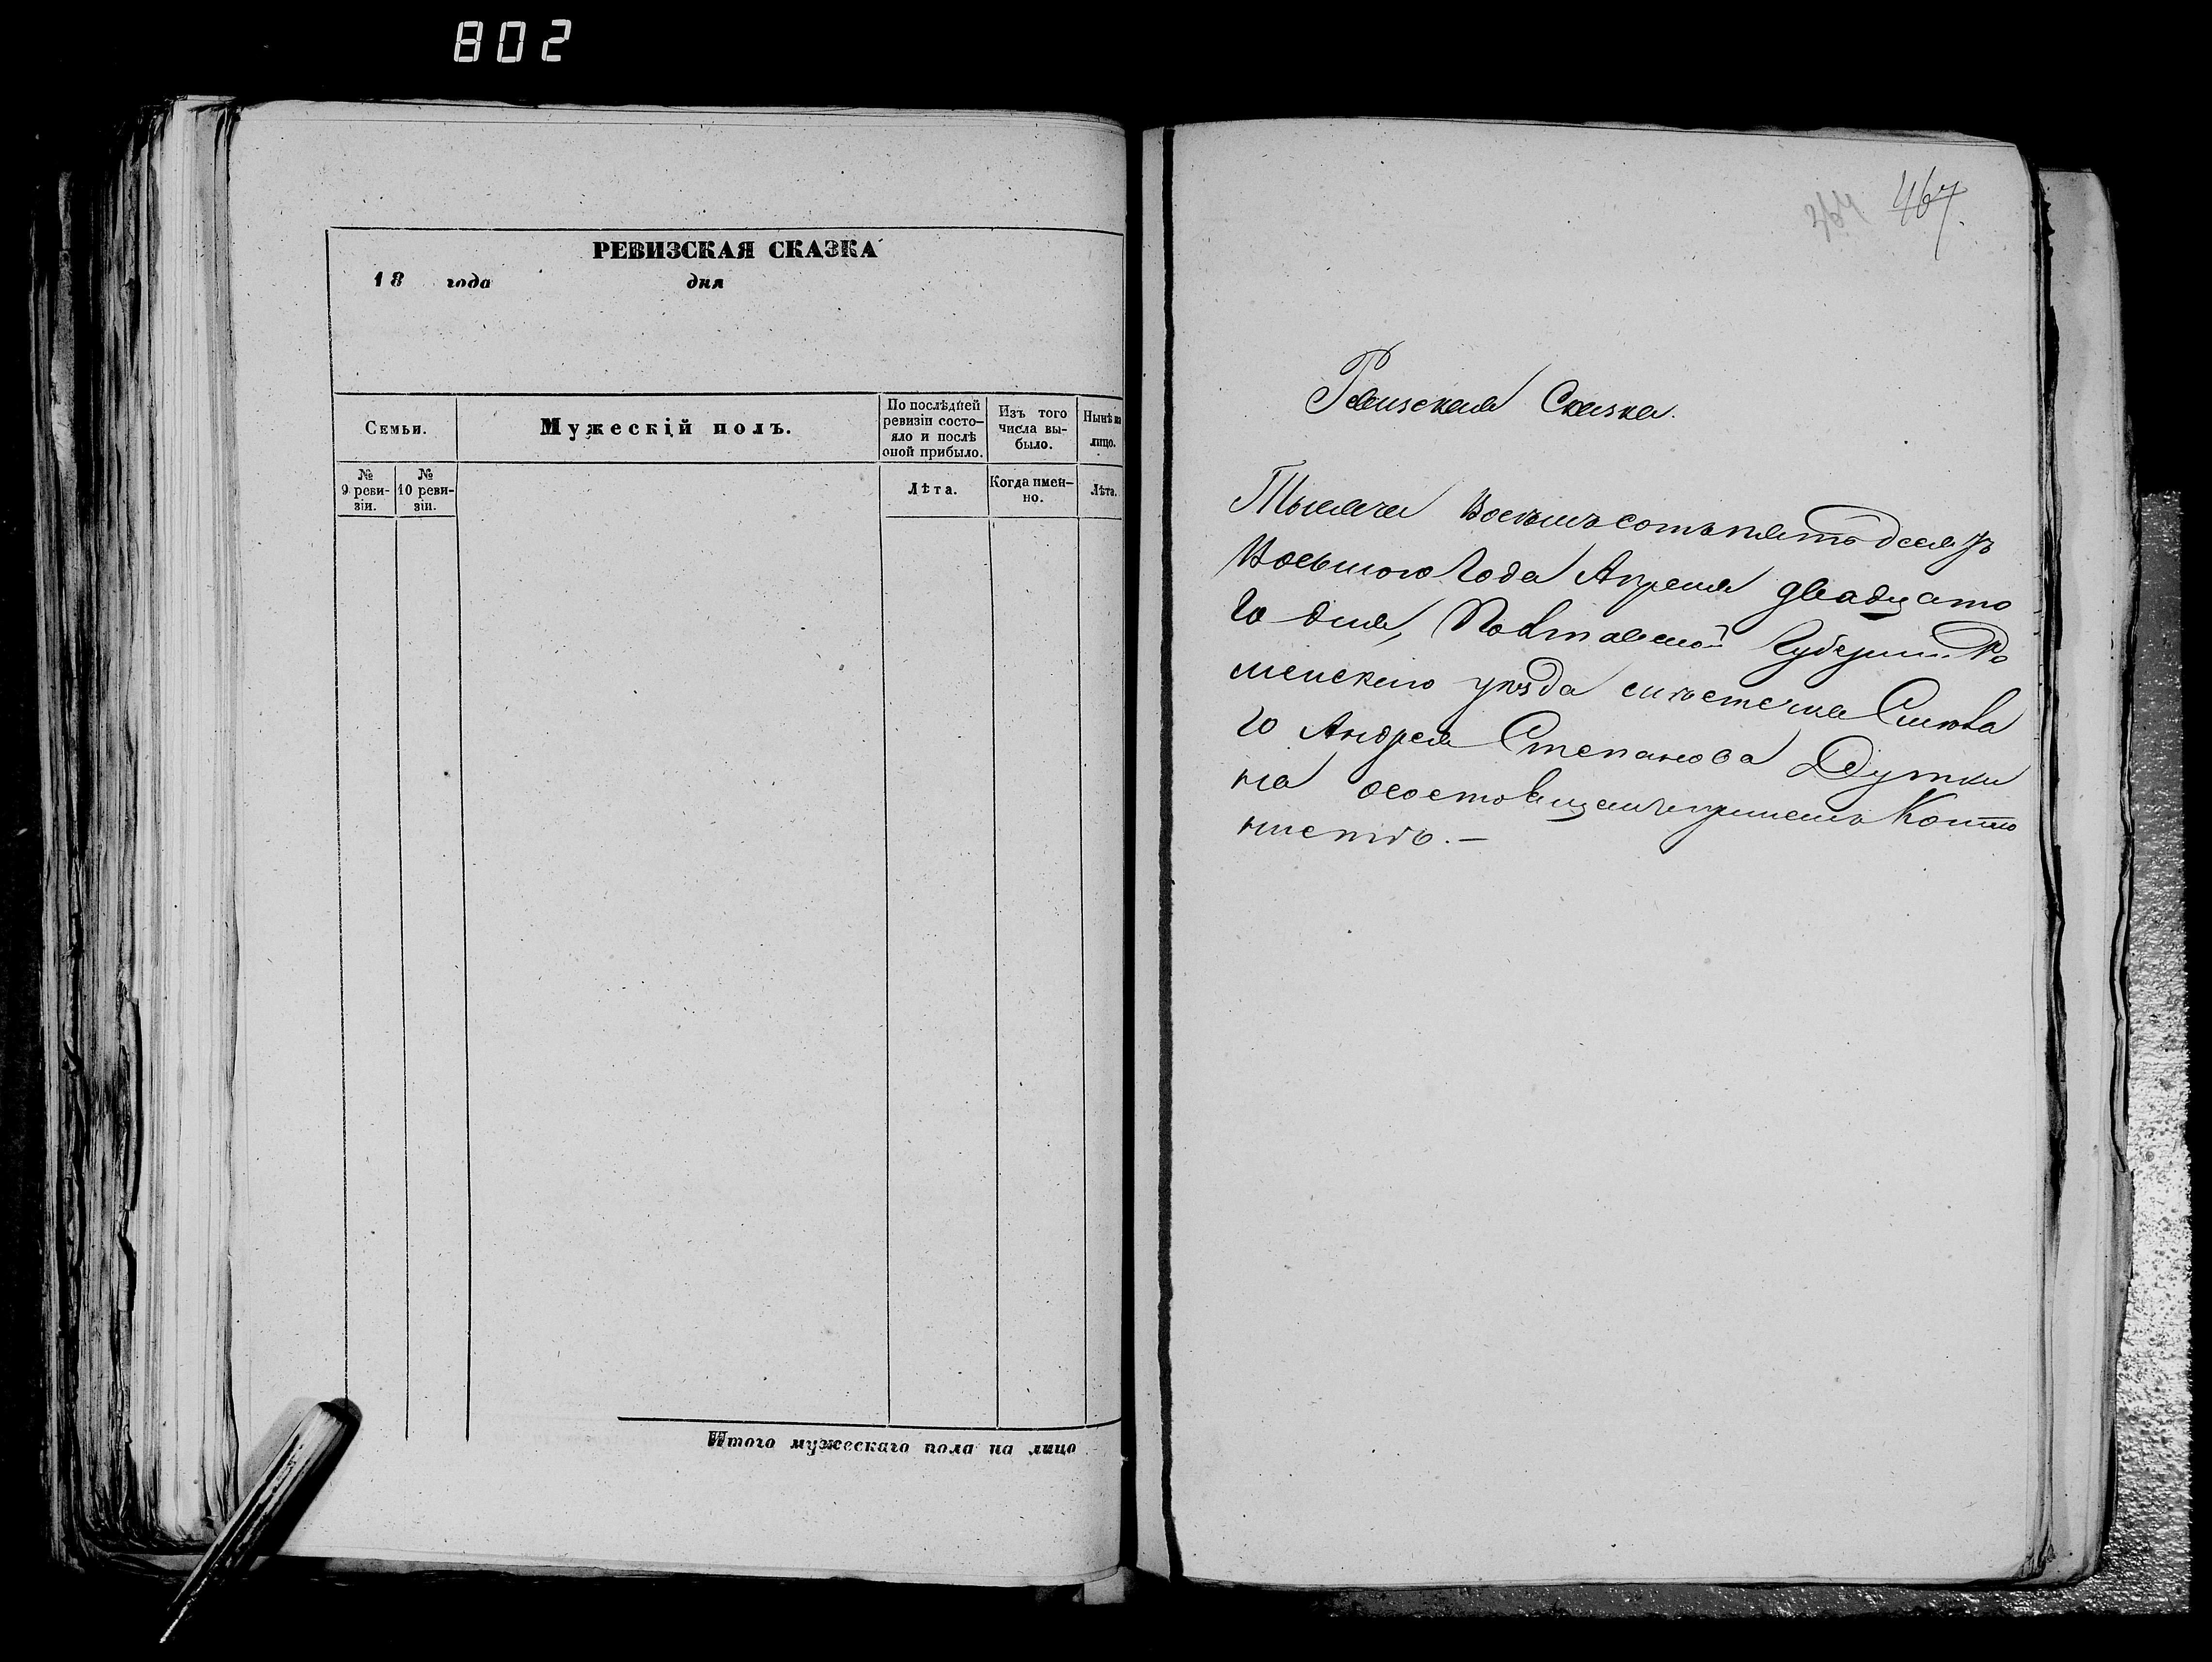 802
РЕВИЗСКАЯ СКАЗКА
18 года дня
Семьи.
Мужескій полъ.
По послѣдней
ревизіи состо-
яло и послѣ
оной прибыло.
Изъ того
числа вы-
было.
Нынѣ на
лицо.
№
9 реви-
зіи.
№
10 реви-
зіи.
Лѣта.
Когда имен-
но.
Лѣта.
Итого мужескаго пола на лицо
364 467
Ревизская Сказка.
Тысяча восемьсотъ пятьдесятъ
восьмого Года Апреля двадцато
го дня, Полтавской Губерніи Ро
менского уѣзда мѣстечка Смѣло
го Андрея Степанова Дутки
на
нистъ.—